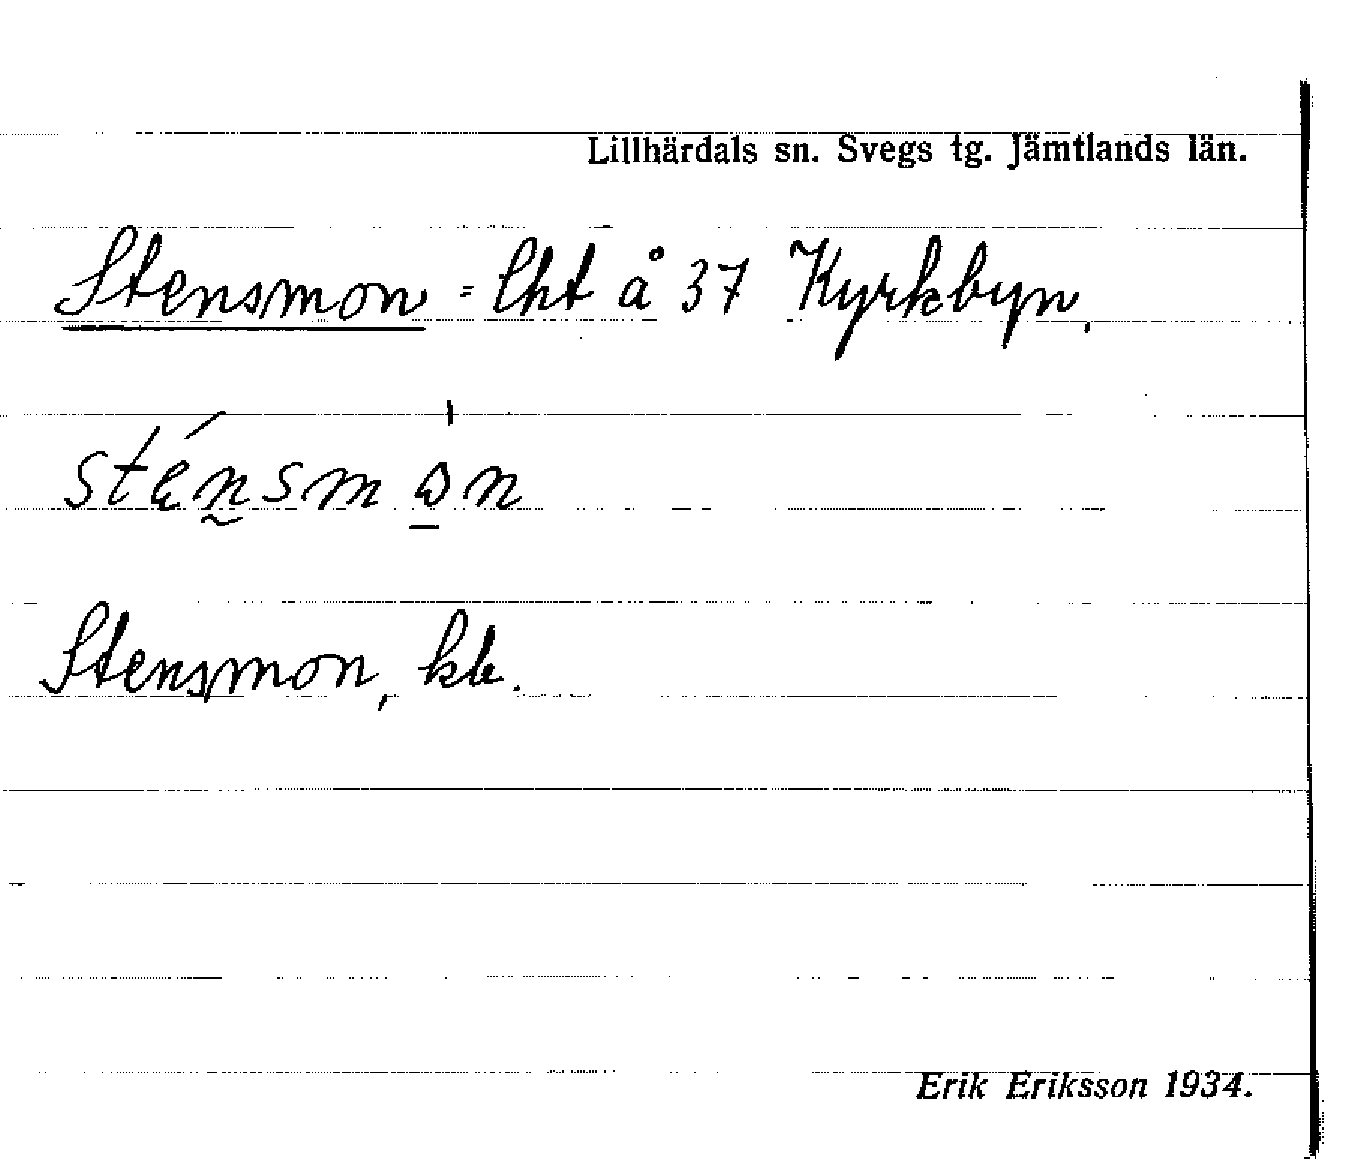 Lillhärdals sn. Svegs tg. Jämtlands län.
Stensmon = lht å 37 Kyrkbyn.
Stensmon, kb.
Erik Eriksson 1934.